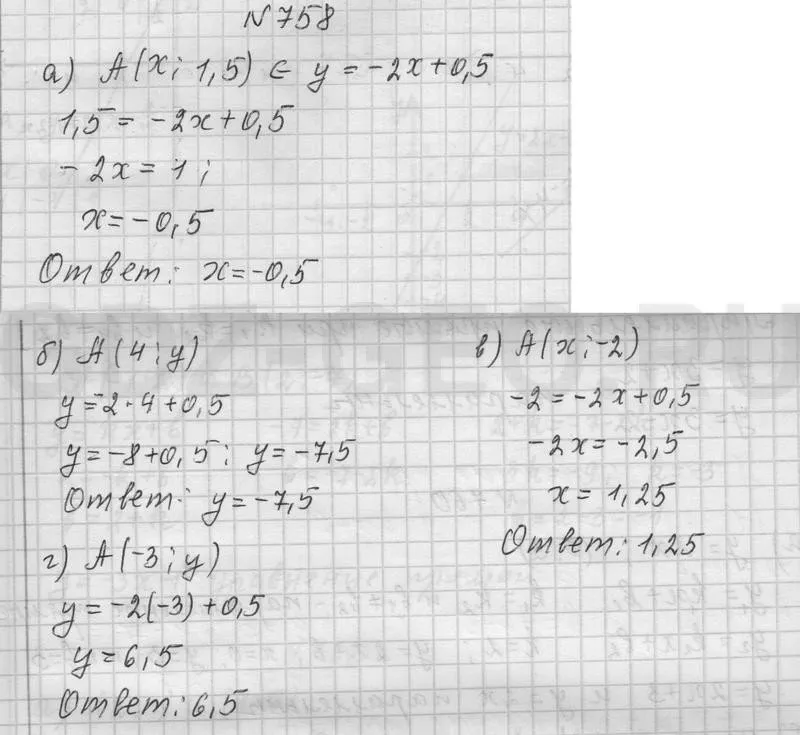 № 758
а) А(х; 1,5) ∈ y = -2x + 0,5
1,5 = -2x + 0,5
-2x = 1;
x = -0,5
Ответ: x = -0,5
б) А(4; y)
y = -2·4 + 0,5
y = -8 + 0,5; y = -7,5
Ответ: y = -7,5
в) А(x; -2)
-2 = -2x + 0,5
-2x = -2,5
x = 1,25
Ответ: 1,25
г) А(-3; y)
y = -2(-3) + 0,5
y = 6,5
Ответ: 6,5